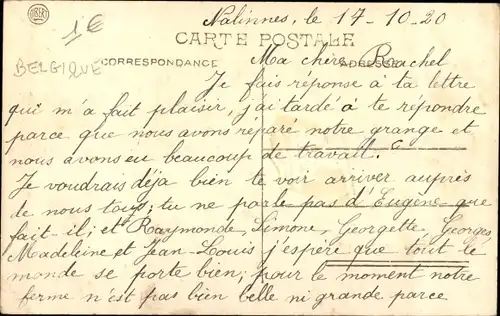 1€
Nalinnes, le 17-10-20
CARTE POSTALE
BELGIQUE
CORRESPONDANCE
ADRESSE
Ma chère Rachel
Je fais réponse à ta lettre
qui m'a fait plaisir, j'ai tardé à te répondre
parce que nous avons réparé notre grange et
nous avons eu beaucoup de travail.
Je voudrais déja bien te voir arriver auprès
de nous tous; tu ne parle pas d'Eugène que
fait il; et Raymonde, Simone, Georgette, Georges,
Madeleine et Jean-Louis j'espère que tout le
monde se porte bien; pour le moment notre
ferme n'est pas bien belle ni grande parce